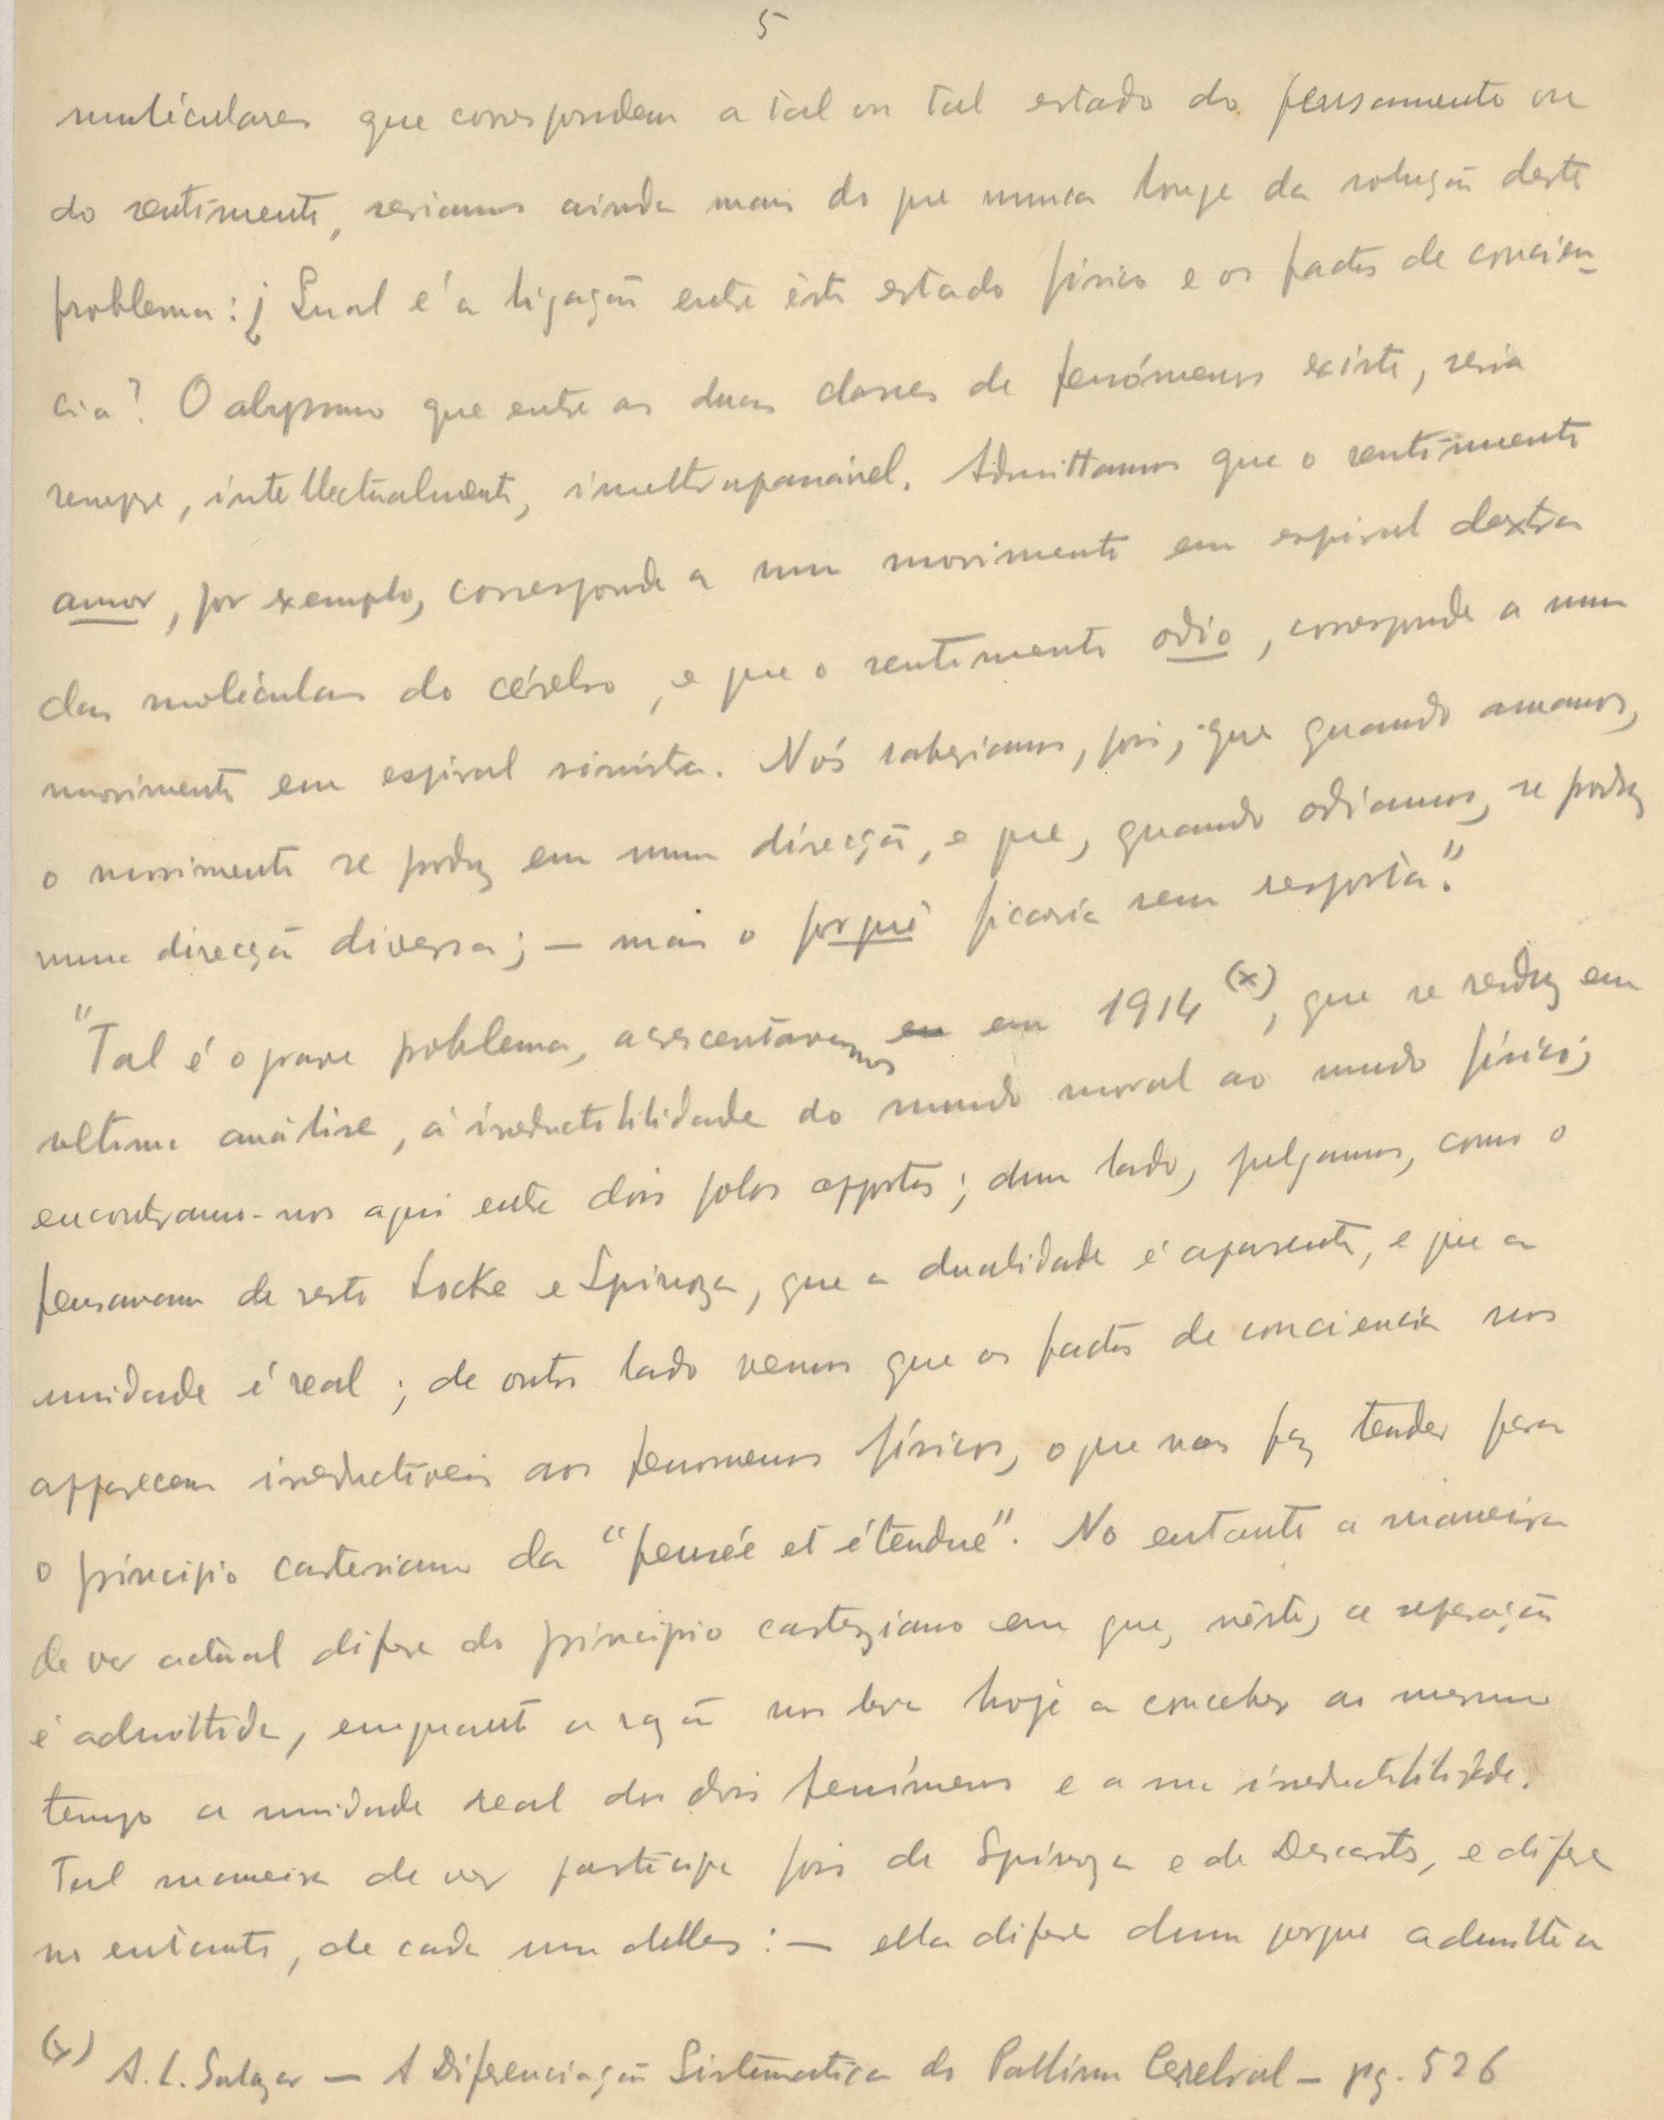 5
moléculares que correspondem a tal ou tal estado do pensamento ou
do sentimento, seriamos ainda mais do que nunca longe da solução deste
problema: ¿ Qual é a ligação entre êste estado físico e os factos de concien-
cia? O abysmo que entre as duas classes de fenómenos existe, seria
sempre, intellectualmente, inultrapassável. Admittamos que o sentimento
amor, por exemplo, corresponde a um movimento em espiral dextra
das moléculas do cérebro, e que o sentimento odio, corresponde a um
movimento em espiral sinistra. Nós saberiamos, pois, que quando amamos,
o movimento se produz em uma direcção, e que, quando odiamos, se produz
numa direcção diversa; — mas o porquê ficaria sem resposta."
"Tal é o grave problema, acrescentavamos em 1914 (x), que se reduz em
ultima análise, á ireductibilidade do mundo moral ao mundo físico;
encontramo-nos aqui entre dois polos oppostos; dum lado, julgamos, como o
pensavam de resto Locke e Spinoza, que a dualidade é aparente, e que a
unidade é real; de outro lado vemos que os factos de conciencia nos
apparecem ireductiveis aos fenomenos físicos, o que nos faz tender para
o principio cartesiano da "pensée et étendue". No entanto a maneira
de ver actual difere do principio carteziano em que, nêste, a separação
é admittida, emquanto a razão nos leva hoje a conceber ao mesmo
tempo a unidade real dos dois fenómenos e a sua ireductibilidade.
Tal maneira de ver participa pois de Spinoza e de Descartes, e difere
no entanto, de cada um delles: — ella difere dum porque admitte a
(x) A. L. Salazar — A Diferenciação Sistematica do Pallium Cerebral — pg. 526